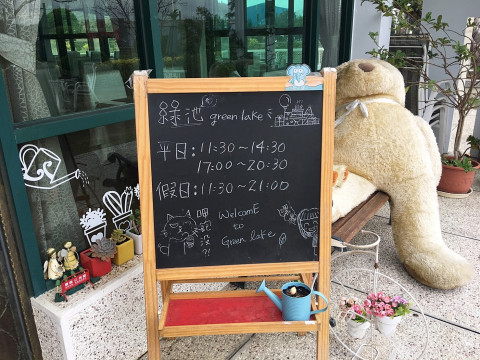 綠池 green lake
平日:11:30~14:30
17:00~20:30
假日:11:30~21:00
呷飽沒?!
Welcome
to
Green lake